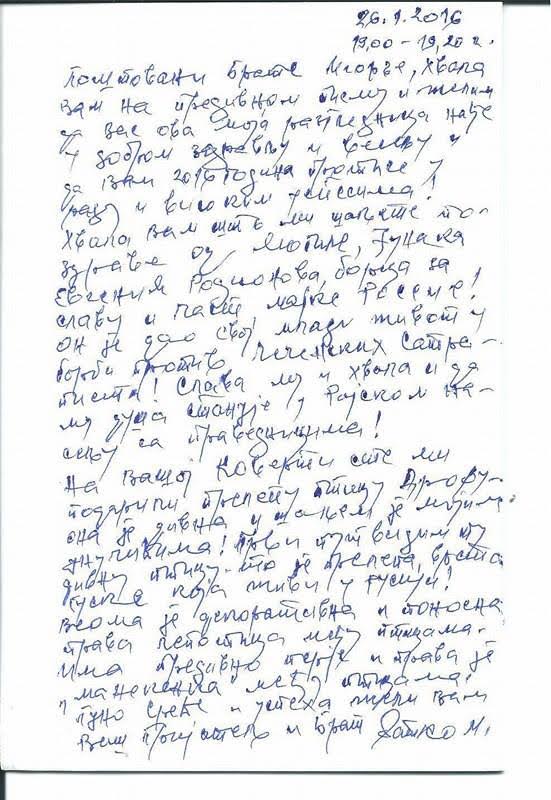 26.1.2016
19,00 – 19,20 г.
Поштовани брате Игоре, хвала
вам на предивном писму и желим
да вас ова моја разгледница нађе
у добром здрављу и весељу и
да вам 2016 година протиче у
раду и високим успесима!
Хвала вам што ми шаљете по-
здраве од мајке, јунака
Евгениј Родионова, борца за
славу и част мајке Росеије!
Он је дао свој млади живот у
борби против чеченских сатра-
писта! Слава му и хвала и да
му душа станује у Рајском на-
сељу са праведницима!
На вашој коверти сте ми
подарили прелепу птицу Дрофу -
она је дивна и шаљем је мојим
унучићима! Први пут видим ту
дивну птицу - то је прелепа врста
гуске која живи у Русији!
Веома је декоративна и поносна
права лепотица међу птицама.
Има предивно перје и права је
"манекенка" међу птицама!
Пуно среће и успеха жели вам
ваш пријатељ и брат Ратко М.